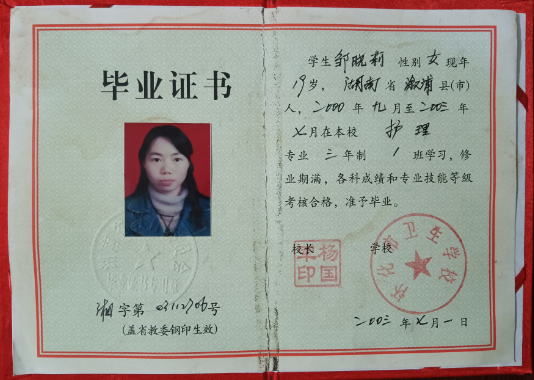 毕业证书
湘字第 03112706号
(盖省教委钢印生效)
学生 邹晓莉 性别 女 现年
19岁，湖南省溆浦县(市)
人，二000年九月至二00三年
七月在本校 护理
专业 三 年制 1 班学习，修
业期满，各科成绩和专业技能等级
考核合格，准予毕业。
校长 学校
杨国
印
怀化市卫生学校
二00三年七月一日